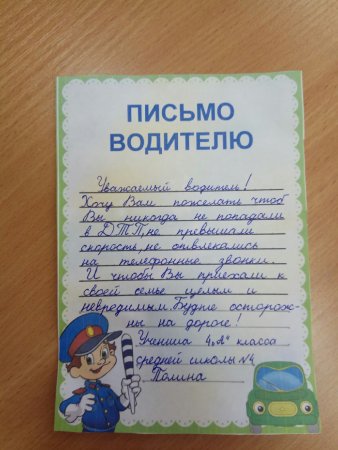 ПИСЬМО
ВОДИТЕЛЮ
Уважаемый водитель!
Хочу Вам пожелать чтоб
Вы никогда не попадали
в ДТП, не превышали
скорость, не отвлекались
на телефонные звонки.
И чтобы Вы приехали к
своей семье целым и
невредимым. Будьте осторож-
ны на дороге!
Ученица 4 „А" класса
средней школы №4
Полина